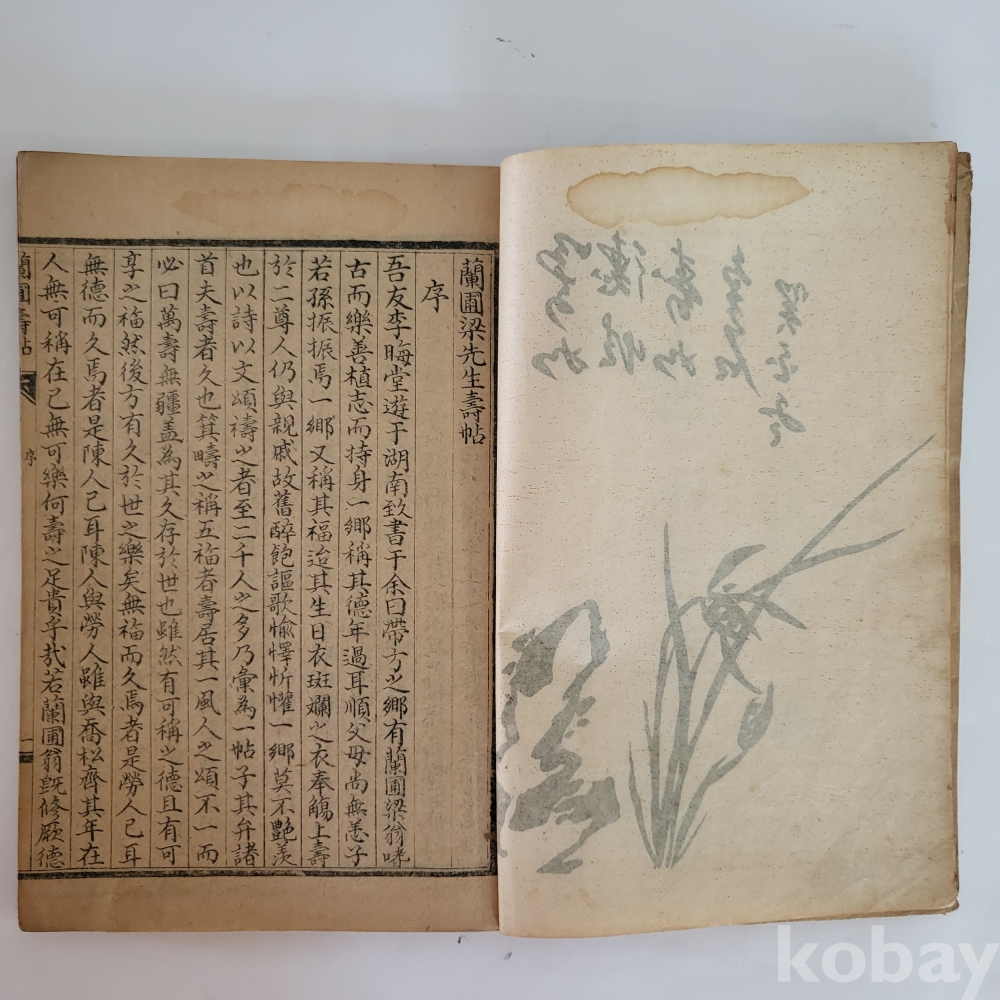 蘭圃梁先生壽帖
序
吾友李晦堂遊于湖南致書于余曰帶方之鄉有蘭圃梁翁嗜
古而樂善植志而持身一鄉稱其德年過耳順父母尚無恙子
若孫振振焉一鄉又稱其福迨其生日衣斑斕之衣奉觴上壽
於二尊人仍與親戚故舊醉飽謳歌愉懌忻懽一鄉莫不艶羨
也以詩以文頌禱之者至二千人之多乃彙為一帖子其弁諸
首夫壽者久也箕疇之稱五福者壽居其一風人之頌不一而
必曰萬壽無疆盖為其久存於世也雖然有可稱之德且有可
享之福然後方有久於世之樂矣無福而久焉者是勞人已耳
無德而久焉者是陳人已耳陳人與勞人雖與喬松齊其年在
人無可稱在己無可樂何壽之足貴乎哉若蘭圃翁旣修厥德
蘭圃壽帖
序
一
kobay